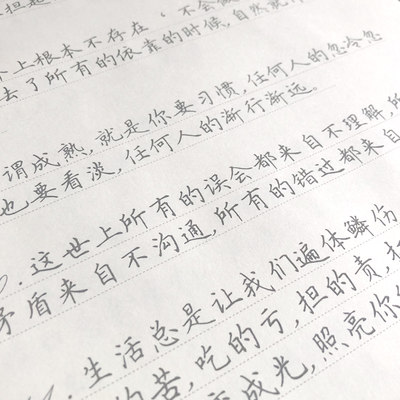 上根本不存在,不会做
去了所有的依靠的时候,自然就
谓成熟,就是你要习惯,任何人的忽冷忽
也要看淡,任何人的渐行渐远。
.这世上所有的误会都来自不理解,所
矛盾来自不沟通,所有的错过都来自
.生活总是让我们遍体鳞伤
的苦,吃的亏,担的责,扛
成光,照亮你